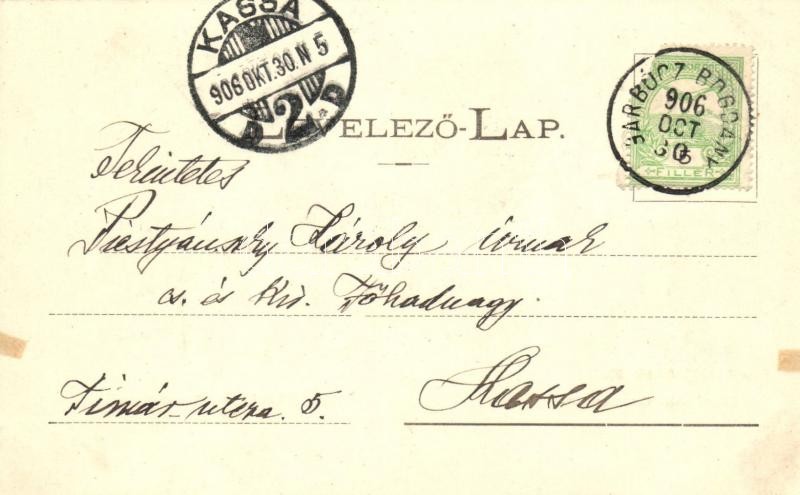 KASSA
906 OKT. 30. N 5
D 2 * D
LEVELEZŐ-LAP.
BOGDÁNY
906
OCT
30
FILLÉR
Tekintetes
Piestyánszky Károly úrnak
cs. és kir. Főhadnagy.
Kassa
Timár utcza. 5.